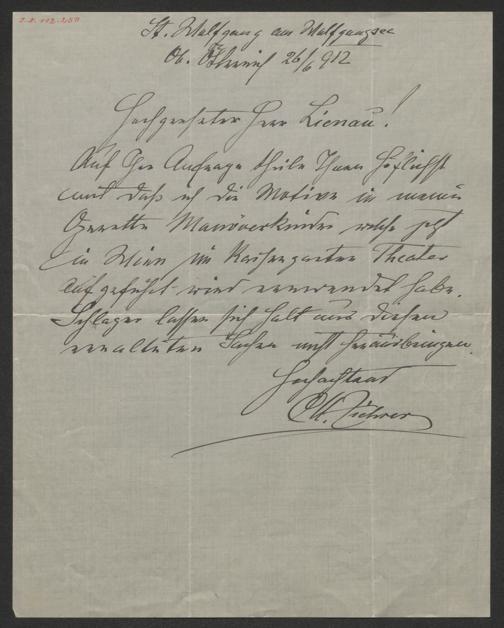 St. Wolfgang am Wolfgangsee
Ob. Österreich 26/6 912
Hochgeehrter Herr Lienau!
Auf Ihre Anfrage theile Ihnen höflichst
mit daß ich die Motive in meine
Operette Manöverkinder welche jetzt
in Wien im Kaisergarten Theater
aufgeführt wird verwendet habe.
Schlager lassen sich halt aus diesen
veralteten Sachen nicht herausbringen.
Hochachtend
C. M. Ziehrer